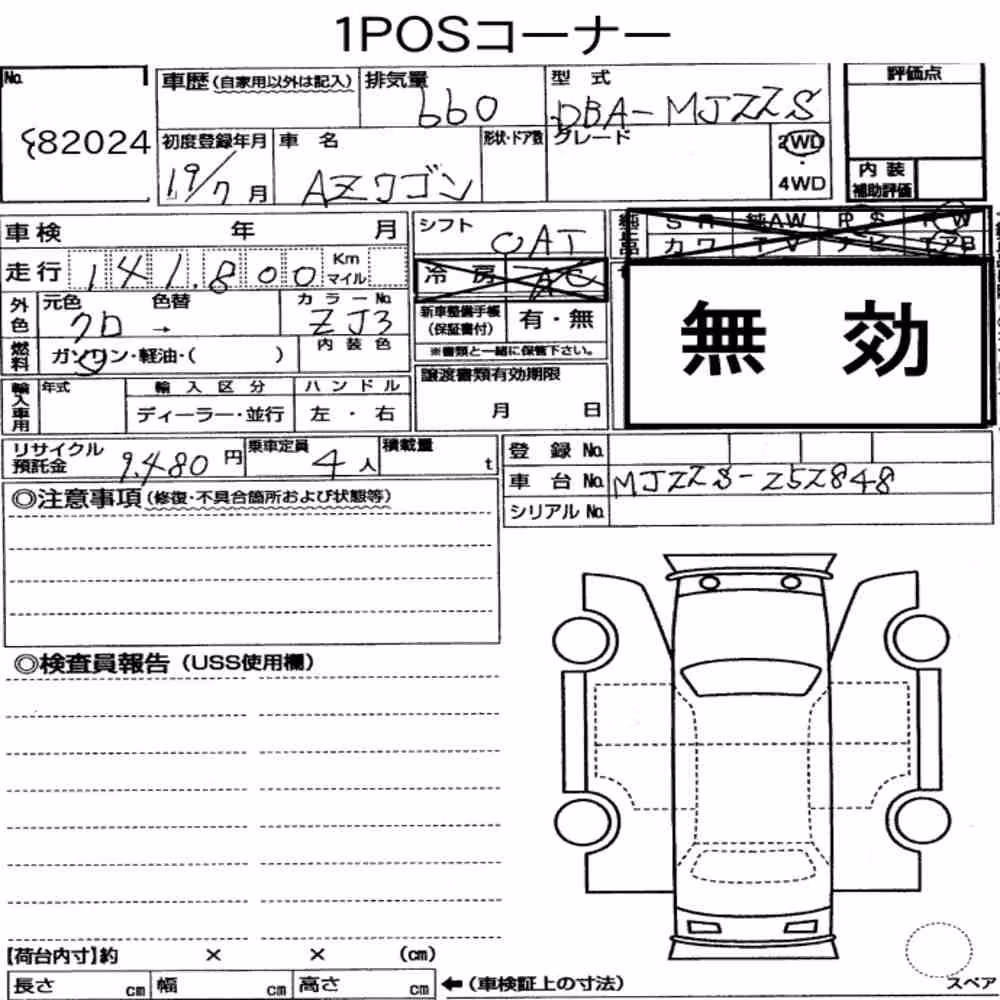 1POSコーナー
No. 82024
車歴(自家用以外は記入) 排気量 660 型式 DBA-MJ22S 評価点
初度登録年月 19/7月 車名 AZワゴン 形状・ドア数 グレード 2WD・4WD
内装補助評価
車検 年 月 シフト OAT 純正品 SR 純AW PS PW
カワ TV ナビ エアB
走行 141.800 Km マイル 冷房 AC
外色 元色 クロ → 色替 カラーNo. ZJ3 新車整備手帳(保証書付) 有・無 無効
内装色 ※書類と一緒に保管下さい。
燃料 ガソリン・軽油・( )
譲渡書類有効期限 月 日
輸入車用 年式 輸入区分 ハンドル
ディーラー・並行 左・右
リサイクル預託金 9.480円 乗車定員 4人 積載量 t 登録No.
車台No. MJ22S-252848
シリアルNo.
◎注意事項(修復・不具合箇所および状態等)
◎検査員報告(USS使用欄)
【荷台内寸】約 × × (cm)
長さ cm 幅 cm 高さ cm ←(車検証上の寸法)
スペア